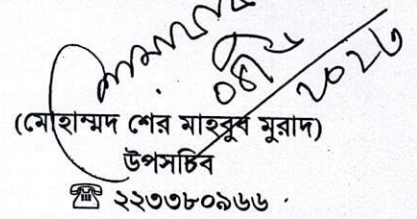 (মোহাম্মদ শের মাহবুব মুরাদ)
উপসচিব
☎ ২২৩৩৮০৯৬৬